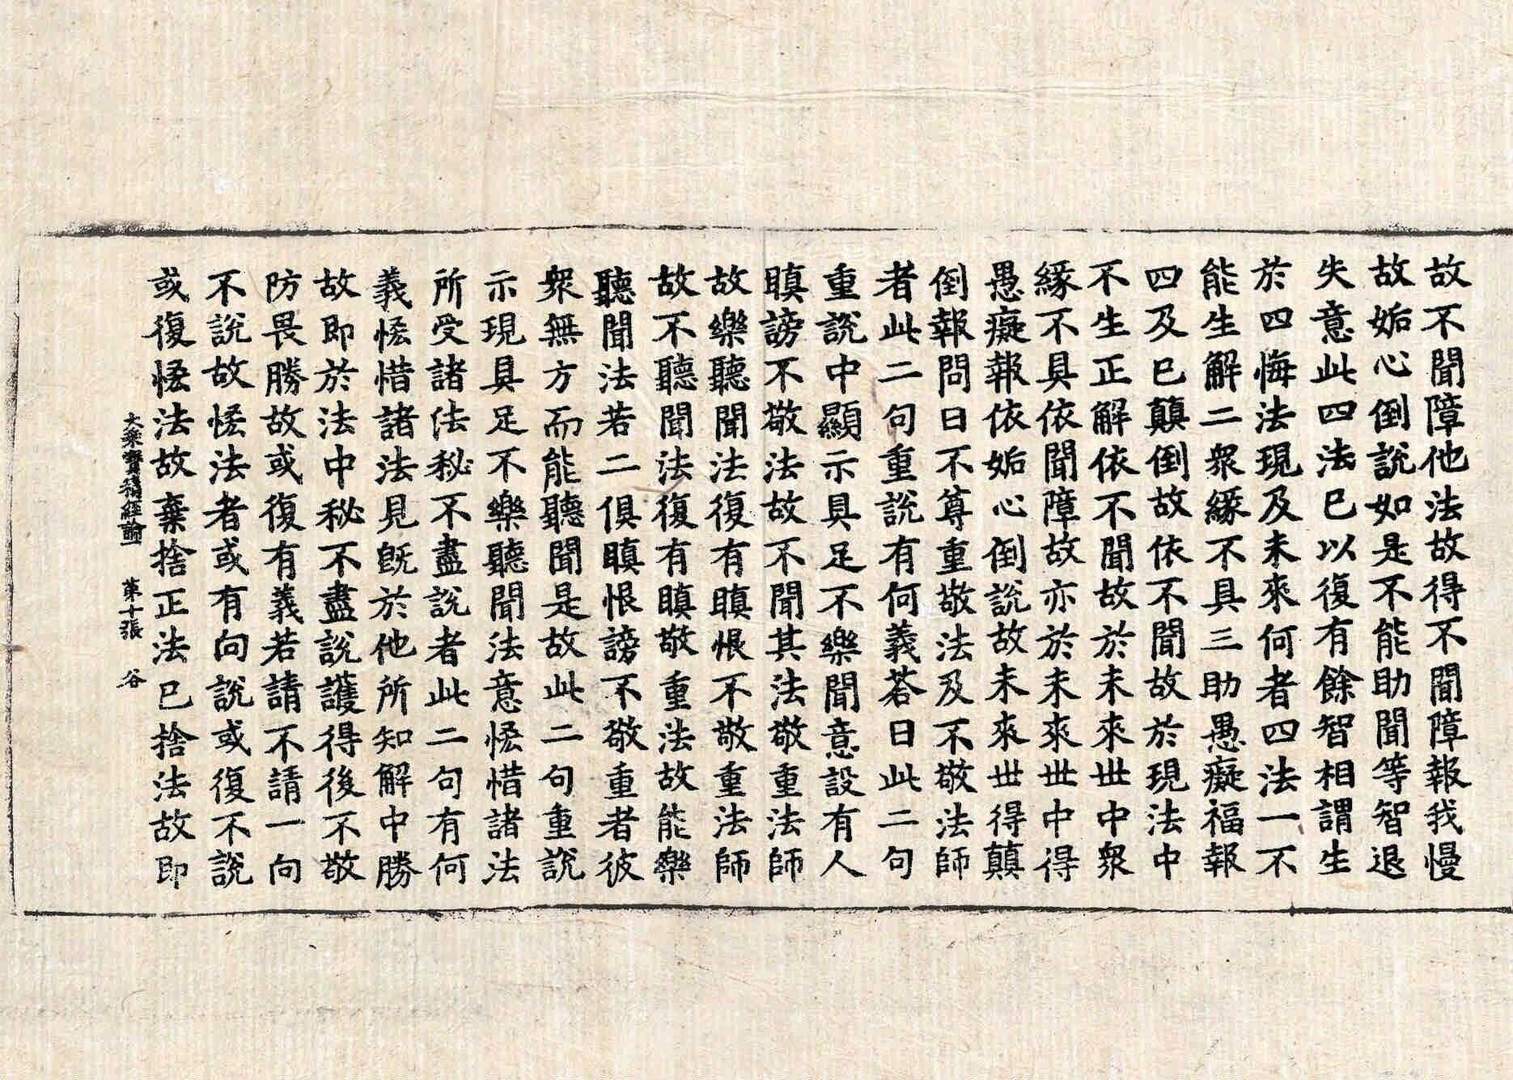 故不聞障他法故得不聞障報我慢
故姤心倒說如是不能助聞等智退
失意此四法已以復有餘智相謂生
於四悔法現及未來何者四法一不
能生解二衆緣不具三助愚癡福報
四及已顛倒故依不聞故於現法中
不生正解依不聞故於未來世中衆
緣不具依聞障故亦於未來世中得
愚癡報依姤心倒說故未來世得顛
倒報問曰不尊重敬法及不敬法師
者此二句重說有何義荅曰此二句
重說中顯示具足不樂聞意設有人
瞋謗不敬法故不聞其法敬重法師
故樂聽聞法復有瞋恨不敬重法師
故不聽聞法復有瞋敬重法故能樂
聽聞法若二俱瞋恨謗不敬重者彼
衆無方而能聽聞是故此二句重說
示現具足不樂聽聞法意悋惜諸法
所受諸法秘不盡說者此二句有何
義悋惜諸法見旣於他所知解中勝
故即於法中秘不盡說護得後不敬
防畏勝故或復有義若請不請一向
不說故悋法者或有向說或復不說
或復悋法故棄捨正法已捨法故即
大乘寶積經論一 第十張 谷